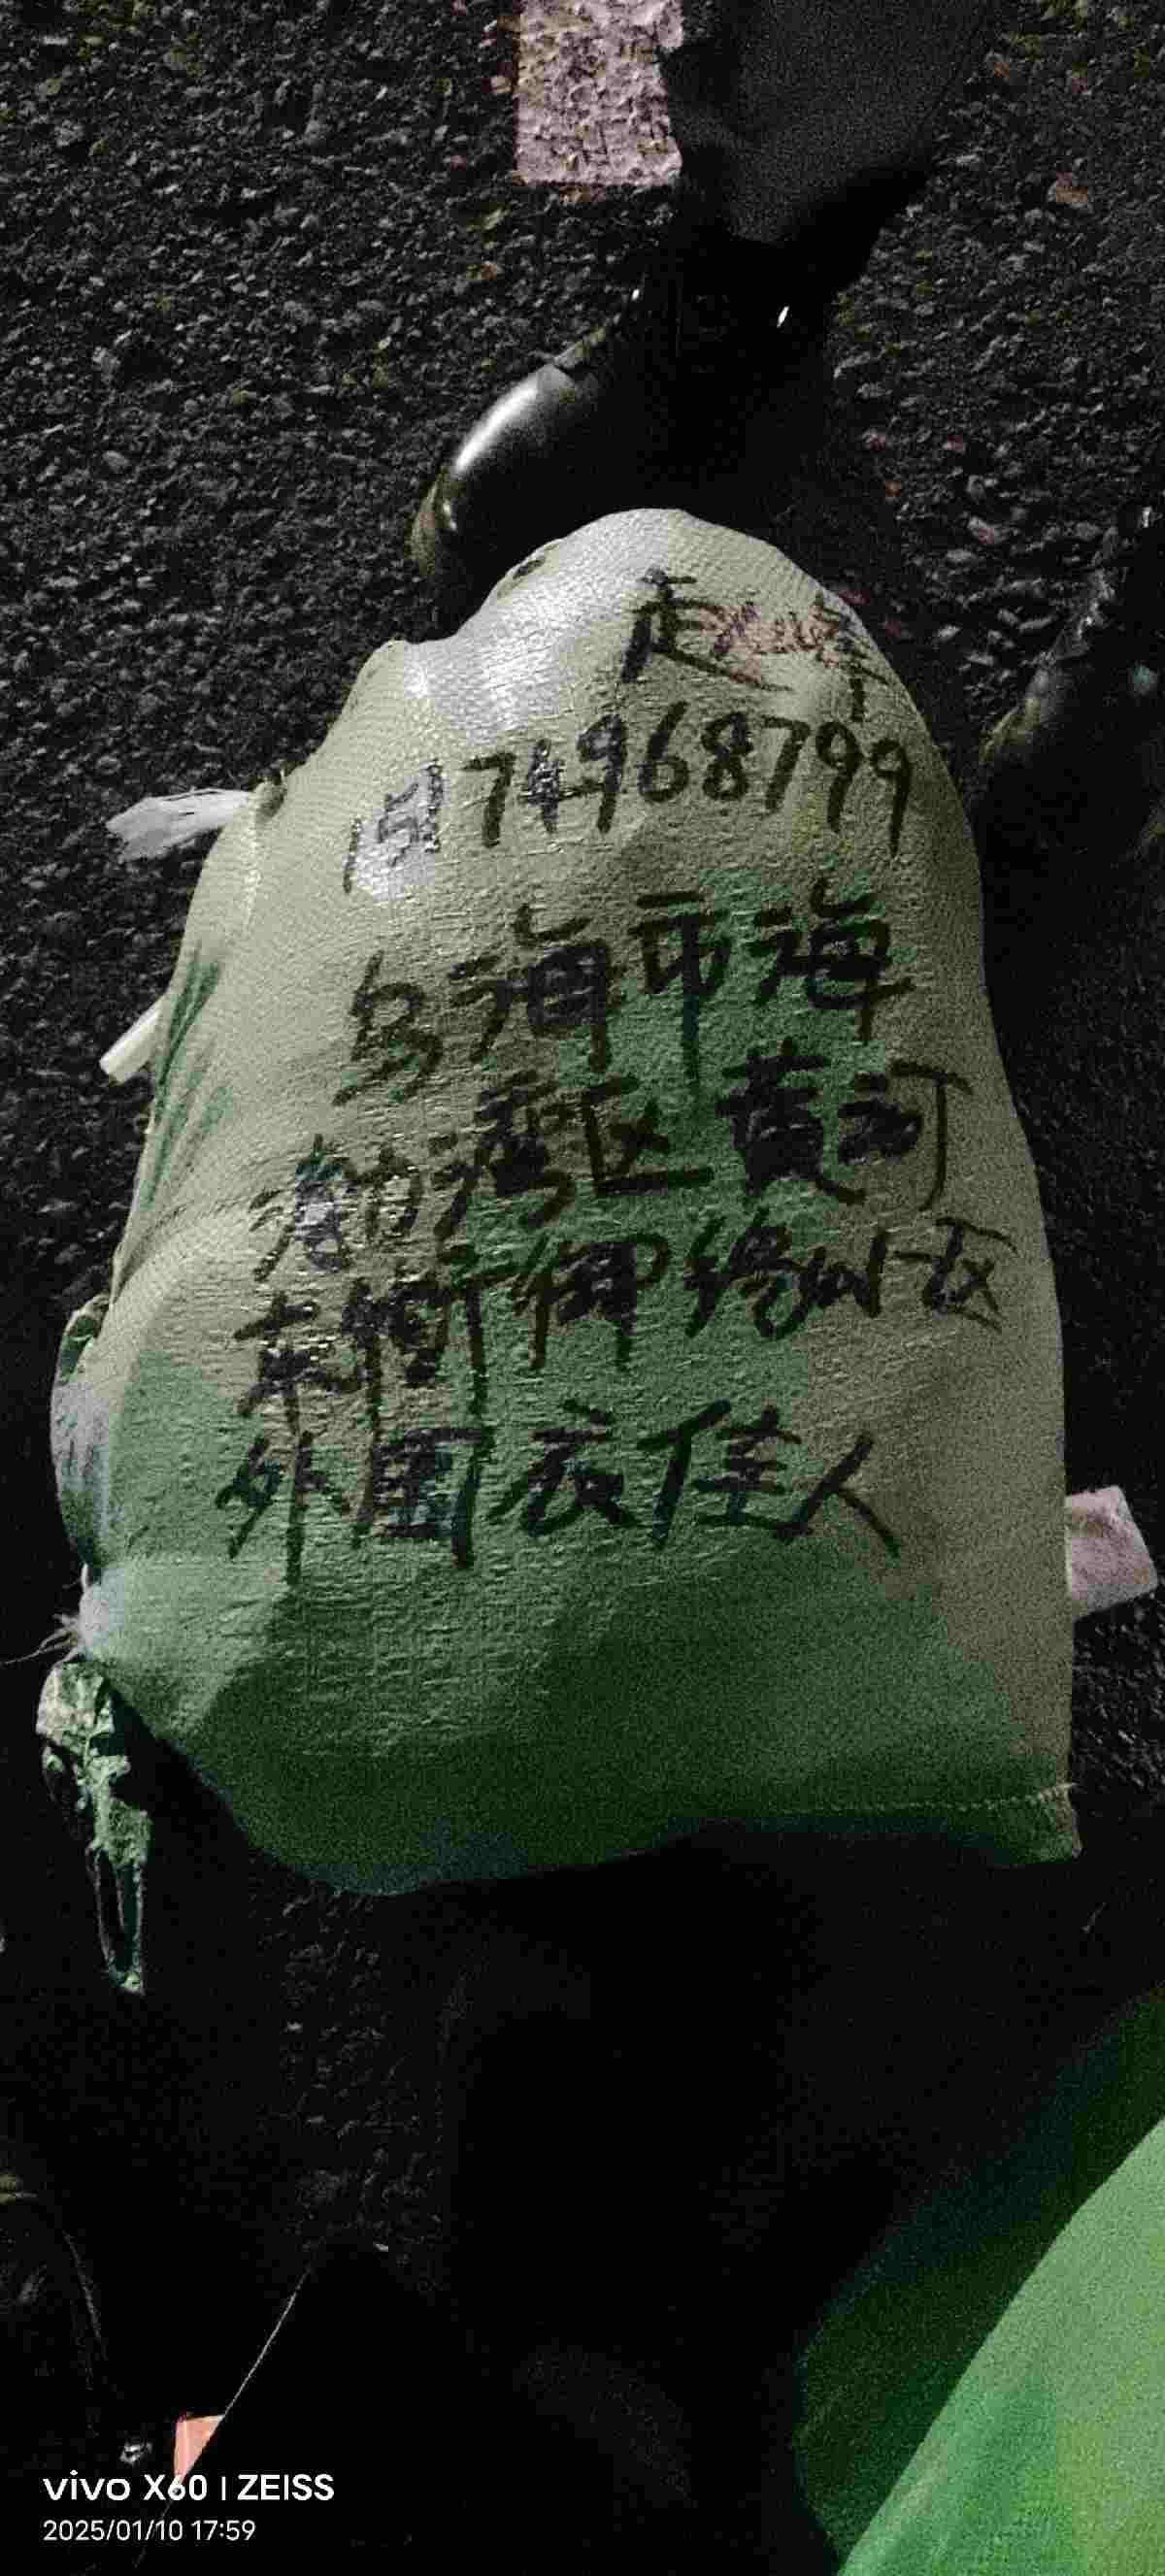 15174968799
乌海市海
勃湾区黄河
东街御缘小区
外围衣佳人
vivo X60 | ZEISS
2025/01/10 17:59